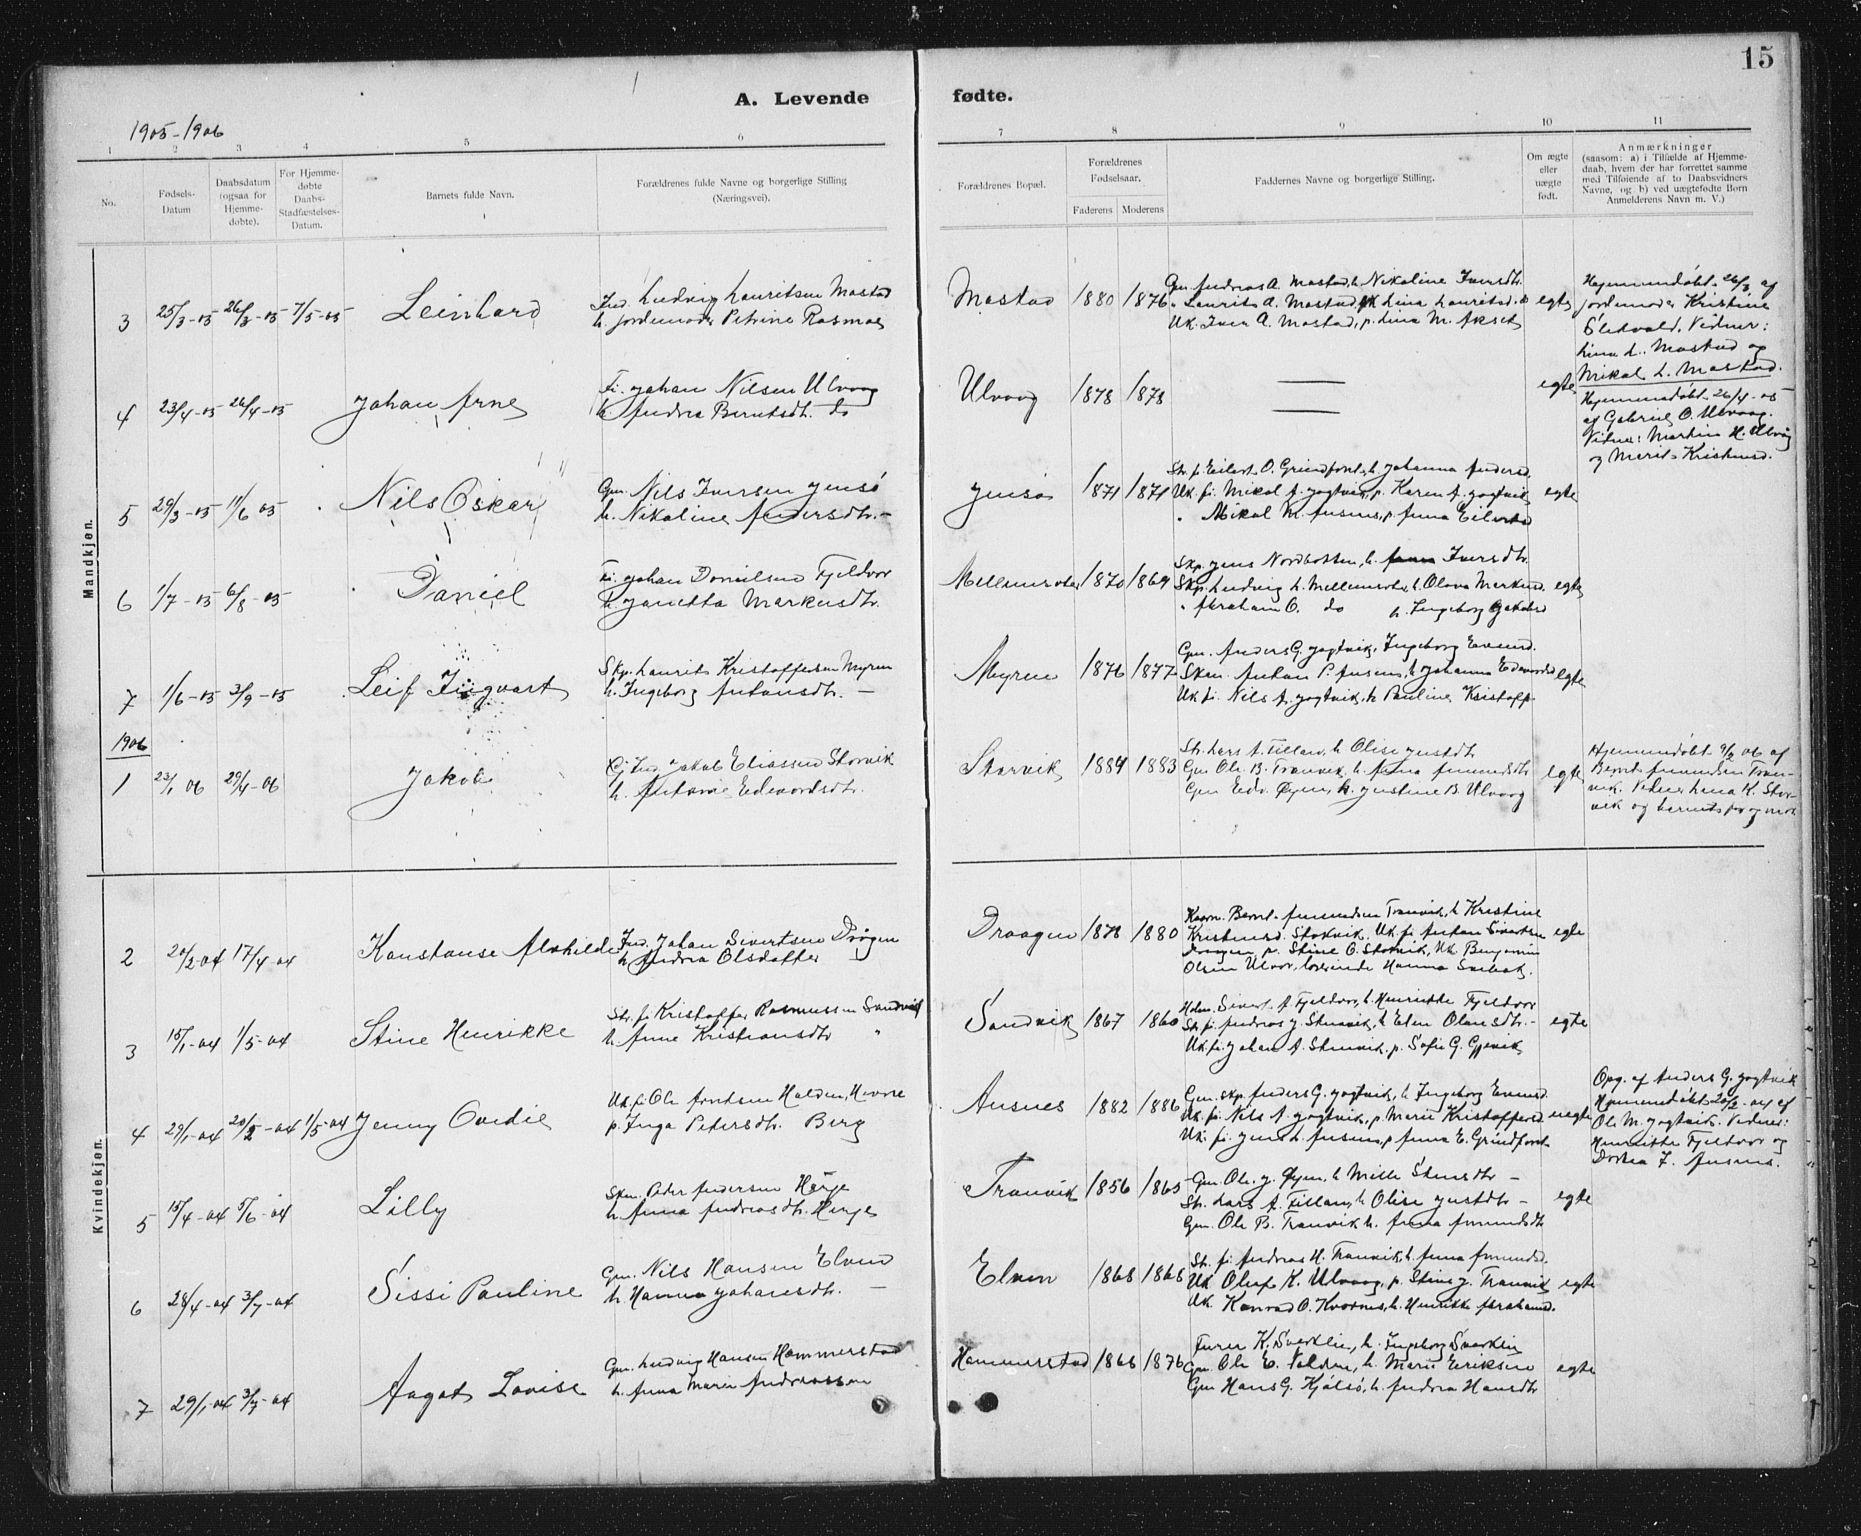 15
A. Levende fødte.
1905-1906
1 2 3 4 5 6 7 8 9 10 11
No.
Fødsels-
Datum
Daabsdatum
(ogsaa for
Hjemme-
døbte).
For Hjemme-
døbte
Daabs-
Stadfæstelses-
Datum.
Barnets fulde Navn.
Forældrenes fulde Navne og borgerlige Stilling
(Næringsvei).
Forældrenes Bopæl.
Forældrenes
Fødselsaar.
Faderens Moderens
Faddernes Navne og borgerlige Stilling.
Om ægte
eller
uægte
født.
Anmærkninger
(saasom: a) i Tilfælde af Hjemme-
daab, hvem der har forrettet samme
med Tilføiende af to Daabsvidners
Navne, og b) ved uægtefødte Børn
Anmelderens Navn m. V.)
Mandkjøn.
3 25/3-05 26/3-05 7/5-05 Leinhard
Ind. Ludvig Lauritsen Mastad
h. jordemoder Petrine Rasmos
Mastad 1880 1876
Gm. Andreas A. Mastad, h. Nikoline Iversdtr.
" Laurits A. Mastad, Lina Lauritsd.
Uk. Iver A. Mastad, p. Lina M.
egte
Hjemmedøbt 26/3 af
jordemoder Kristine
Sletvold. Vidner:
Lina L. Mastad og
Mikal L. Mastad.
4 23/4-05 26/4-05 Johan Arne
Fi. Johan Nilsen Ulvaag
h. Andrea Berntsdtr. do
Ulvaag 1878 1878
egte
Hjemmedøbt 26/4-05
af Gabriel O. Ulvaag.
Vidner: Martin H. Ulvåg
og Merit Kristensd.
5 29/3-05 11/6 05 Nils Oskar
Gm. Nils Iversen Jensø
h. Nikoline Andersdtr. -
Jensø 1871 1871
Str. fi. Eilert O. Grindfont, h. Johanna Andersd.
Uk. fi. Mikal A. Jøgtvik, p. Karen A. Jøgtvik
" Mikal M. Ansnes, p. Anna Eilertsd
egte
6 1/7-05 6/8-05 Daniel
Fi. Johan Danielsen Fjeldvær
h. Janetta Markusdtr.
1870 1869
Skp. Jens Nordbotten, h. Iversdtr.
Skp. Ludvig L. h. Olava Markusd.
" Abraham O. do h. Ingeborg
egte
7 1/6-05 3/9-05 Leif Ingvart
Skp. Laurits Kristoffersen Myren
h. Ingeborg Antonsdtr. -
Myren 1876 1877
Gm. Anders G. Jøgtvik, Ingeborg Evensd.
Skm. Anton P. Ansnes, h. Johanna Edvardsd
Uk. fi. Nils A. Jøgtvik, h. Pauline Kristoff.
egte
1906
1 23/1 06 29/4-06 Jakob
Gj. Ind. Jakob Eliassen Storvik
h. Antonie Edvardsdtr.
Storvik 1884 1883
Str. Lars A. Fillan, h. Olise Justdtr
Gm Ole B. Tranvik, h. Anna Amundsdtr
Gm Edv. Øyen, h. Justine B. Ulvaag
egte
Hjemmedøbt 9/2 06 af
Bernt Amundsen Tran-
vik. Vidner Lena K. Stor-
vik og barnets far og mor
Kvindekjøn.
2 20/2-04 17/4-04 Konstanse Alvhilde
Ind. Johan Sivertsen Drågen
h. Andrea Olsdatter
Draagen 1878 1880
Bernt Amundsen Tranvik, h. Kristine
Kristensd. Storvik, Uk. fi. Anton Sivertsen
Draagen, p. Stine O. Storvik, Uk. Benjamin
Olsen Ulvær, lærerinde Hanna
egte
3 15/1-04 1/5-04 Stine Henrikke
Str. fi. Kristoffer Rasmussen Sandvik
h. Anne Kristiansdtr "
Sandvik 1867 1860
Sivert A. Fjeldvær, h. Henrikke Fjeldvær
Str. fi. Andreas J. Stenvik, h. Elen Olausdtr. -
Uk. fi. Johan A. Stenvik, p. Sofie G. Gjevik
egte
4 29/1-04 20/2-04 1/5-04 Jenny Ovedie
Uk. fi. Ole Arntsen Halden, Hevne
p. Inga Petersdtr. Berg
Ansnes 1882 1886
Gm. skp. Anders G. Jøgtvik, h. Ingeborg Evensd.
Uk. fi. Nils A. Jøgtvik, p. Marie Kristoffersd
Uk. fi. Jens L. Ansnes, p. Anna E. Grindfont
uegte
Opg. af Anders G. Jøgtvik
Hjemmedøbt 20/2-04 af
Ole M. Jøgtvik. Vidner:
Henrikke Fjeldvær og
Dortea J. Ansnes.
5 15/4-04 5/6-04 Lilly
Skm. Peder Andersen Herje
h. Anna Andreasdtr. Herje
Tranvik 1856 1865
Gm. Ole J. Øyen, h. Mille Stensdtr -
Str. Lars A. Fillan, h. Olise Justdtr -
Gm. Ole B. Tranvik h. Anna Amundsdtr
egte
6 28/4-04 3/7-04 Sissi Pauline
Gm. Nils Hansen Elven
h. Hanna Johansdtr. -
Elven 1868 1868
Str. fi. Andreas H. Tranvik, h. Anna Amundsd.
Uk Oluf K. Ulvaag, p. Stine J. Tranvik
Uk. Konrad O. Kvernes, h. Henrikke Abrahamsd.
egte
7 29/1-04 3/7-04 Aagot Lovise
Gm. Ludvig Hansen Hammerstad
h. Anna Marie Andreassen
Hammerstad 1868 1876
K. Sverklin, h. Ingeborg Sverklin
Gm Ole E. Valden, h. Marie Eriksen
Gm Hans G. Kjølsø, h. Andrea Hansdtr
egte